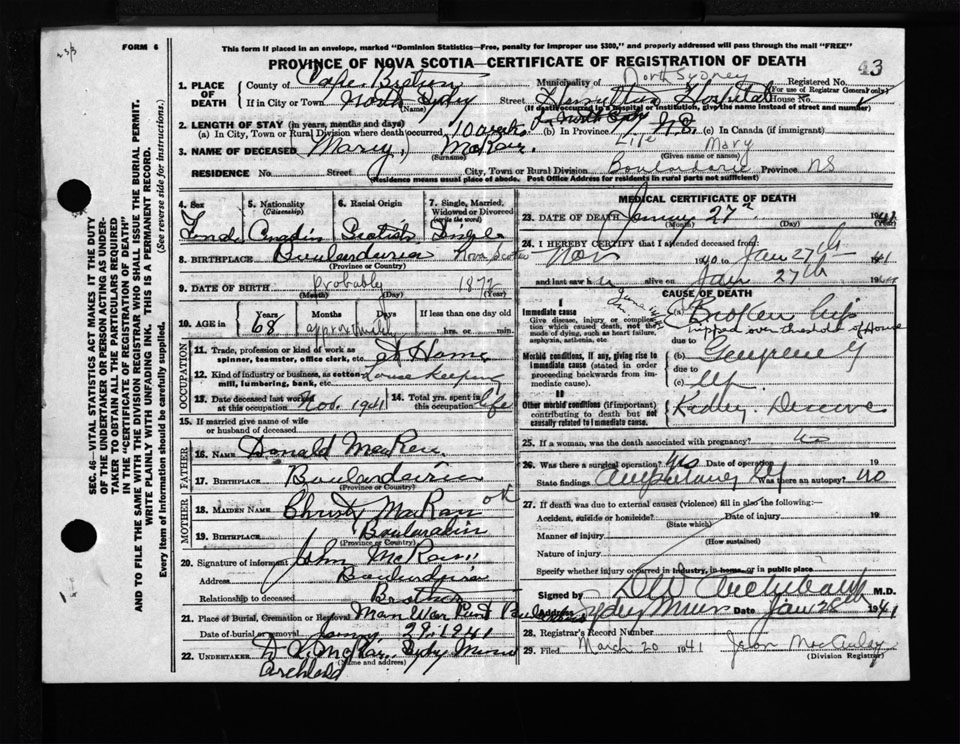 FORM 6
This form if placed in an envelope, marked "Dominion Statistics—Free, penalty for improper use $300," and properly addressed will pass through the mail "FREE"
PROVINCE OF NOVA SCOTIA—CERTIFICATE OF REGISTRATION OF DEATH
43
SEC. 46—VITAL STATISTICS ACT MAKES IT THE DUTY
OF THE UNDERTAKER OR PERSON ACTING AS UNDER-
TAKER TO OBTAIN ALL THE PARTICULARS REQUIRED
IN THE "CERTIFICATE OF REGISTRATION OF DEATH"
AND TO FILE THE SAME WITH THE DIVISION REGISTRAR WHO SHALL ISSUE THE BURIAL PERMIT.
WRITE PLAINLY WITH UNFADING INK. THIS IS A PERMANENT RECORD.
Every item of information should be carefully supplied. (See reverse side for instructions.)
1. PLACE OF DEATH
County of Cape Breton Municipality of North Sydney Registered No.
(For use of Registrar General only)
If in City or Town North Sydney Street Hamilton Hospital House No.
(Name) (If death occurred in a hospital or institution, give the name instead of street and number)
2. LENGTH OF STAY (in years, months and days)
(a) In City, Town or Rural Division where death occurred 10 weeks (b) In Province N.S. (c) In Canada (if immigrant)
Life
3. NAME OF DECEASED Mary Mary
(Surname) (Given name or names)
RESIDENCE No. Street City, Town or Rural Division Boularderie Province NS
(Residence means usual place of abode. Post Office Address for residents in rural parts not sufficient)
4. Sex
5. Nationality (Citizenship)
6. Racial Origin
7. Single, Married, Widowed or Divorced (write the word)
Scotish Single
8. BIRTHPLACE Nova Scotia
(Province or Country)
9. DATE OF BIRTH probably 1872
(Month) (Day) (Year)
10. AGE in Years Months Days If less than one day old
68 approximately hrs. or min.
OCCUPATION
11. Trade, profession or kind of work as spinner, teamster, office clerk, etc. at Home
12. Kind of industry or business, as cotton mill, lumbering, bank, etc. House Keeping
13. Date deceased last worked at this occupation Nov. 1941
14. Total yrs. spent in this occupation life
15. If married give name of wife or husband of deceased
FATHER
16. NAME Donald
17. BIRTHPLACE
(Province or Country)
MOTHER
18. MAIDEN NAME Christy ok
19. BIRTHPLACE
(Province or Country)
20. Signature of informant John
Address
Relationship to deceased Brother
21. Place of Burial, Cremation or Removal Man War Point
Date of burial or removal 29. 1941
22. UNDERTAKER Sydney Mines
(Name and address)
MEDICAL CERTIFICATE OF DEATH
23. DATE OF DEATH 27
(Month) (Day) (Year)
24. I HEREBY CERTIFY that I attended deceased from:
Nov 1940 to Jan 27th 1941
and last saw h alive on Jan 27th 19
CAUSE OF DEATH
I
Immediate cause
Give disease, injury or complication which caused death, not the mode of dying, such as heart failure, asphyxia, asthenia, etc.
(a) Broken hip
tripped over threshold of House
due to
Morbid conditions, if any, giving rise to immediate cause (stated in order proceeding backwards from immediate cause).
(b)
due to
(c)
II
Other morbid conditions (if important) contributing to death but not causally related to immediate cause.
Kidney Disease
25. If a woman, was the death associated with pregnancy?
26. Was there a surgical operation? Date of operation 19
State findings Was there an autopsy? no
27. If death was due to external causes (violence) fill in also the following:
Accident, suicide or homicide? Date of injury 19
(State which)
Manner of injury
(How sustained)
Nature of injury
Specify whether injury occurred in industry, in home, or in public place
Signed by M.D.
Address Sydney Mines Date Jan 28th 1941
28. Registrar's Record Number
29. Filed March 20 1941
(Division Registrar)